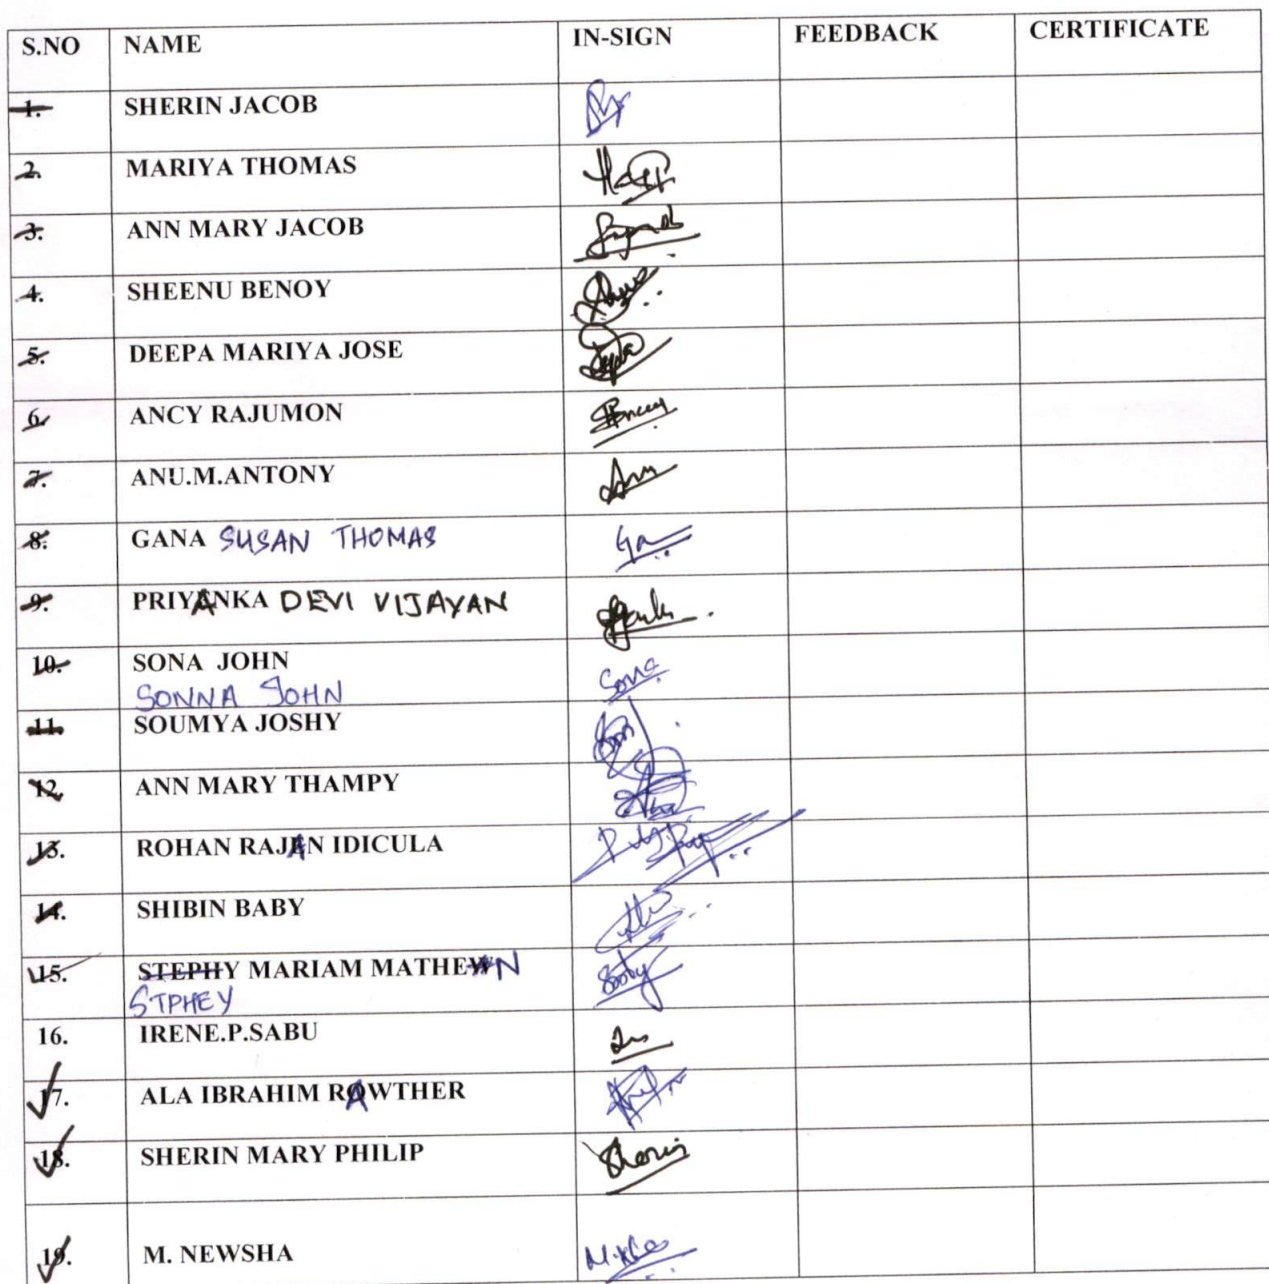 S.NO NAME IN-SIGN FEEDBACK CERTIFICATE
1. SHERIN JACOB
2. MARIYA THOMAS
3. ANN MARY JACOB
4. SHEENU BENOY
5. DEEPA MARIYA JOSE
6. ANCY RAJUMON
7. ANU.M.ANTONY
8. GANA SUSAN THOMAS
9. PRIYANKA DEVI VIJAYAN
10. SONA JOHN
SONNA JOHN
11. SOUMYA JOSHY
12. ANN MARY THAMPY
13. ROHAN RAJAN IDICULA
14. SHIBIN BABY
15. STEPHY MARIAM MATHEWN
STPHEY
16. IRENE.P.SABU
17. ALA IBRAHIM RAWTHER
18. SHERIN MARY PHILIP Sherin
19. M. NEWSHA